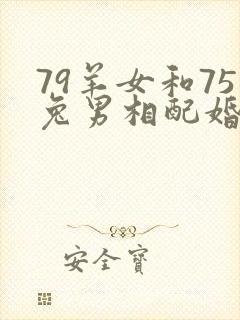 79羊女和75
兔男相配婚
安全寶